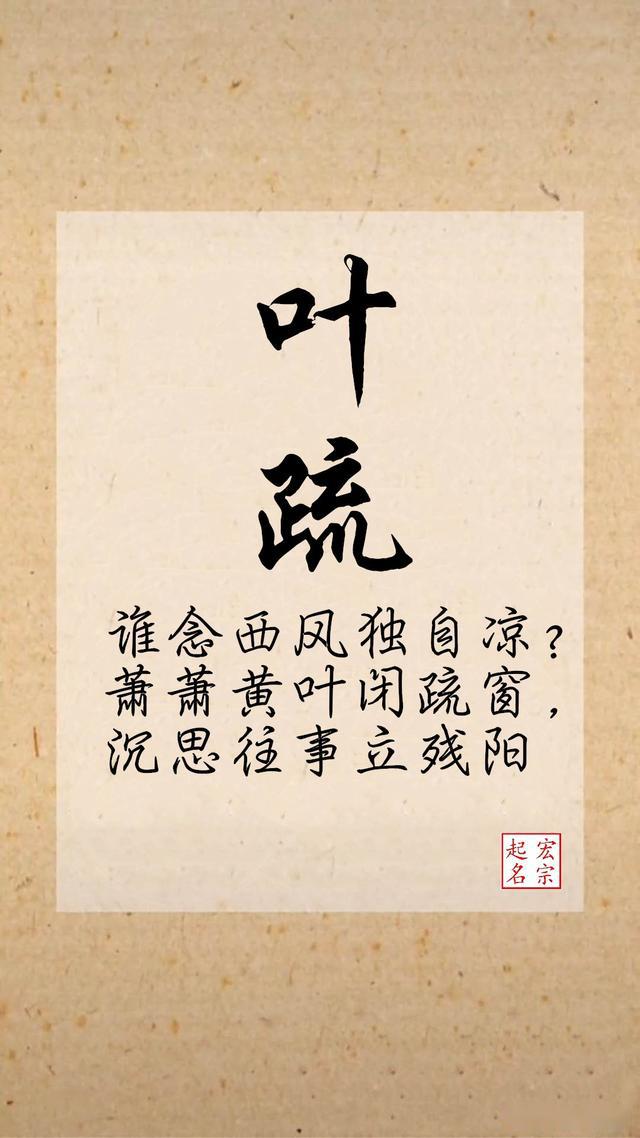 叶
疏
谁念西风独自凉？
萧萧黄叶闭疏窗，
沉思往事立残阳
宏宗
起名